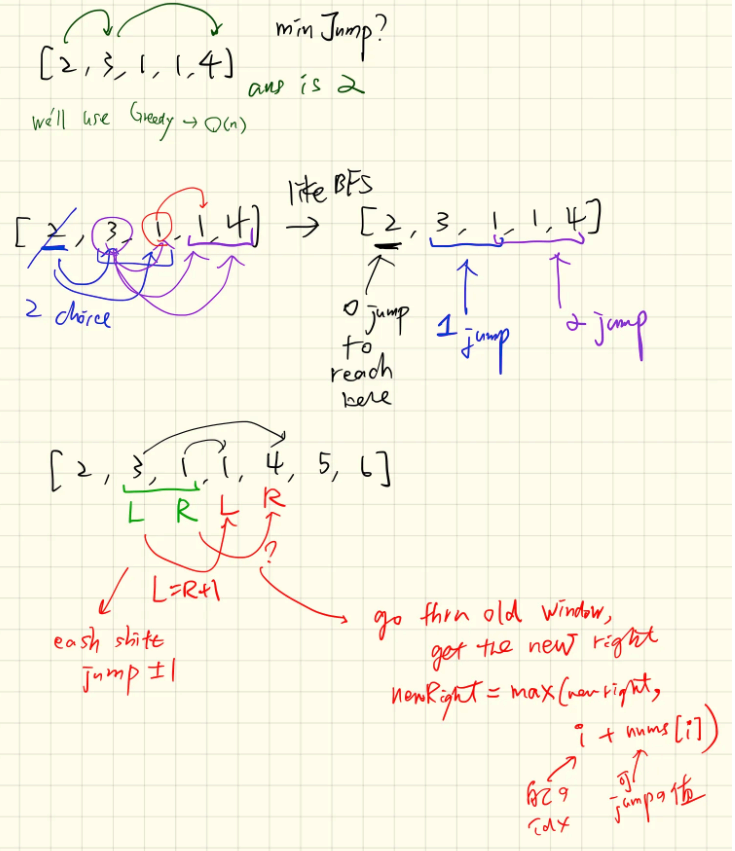 min Jump?
[2, 3, 1, 1, 4]
ans is 2
we'll use Greedy → O(n)
like BFS
[2, 3, 1, 1, 4] → [2, 3, 1, 1, 4]
2 choice
0 jump
to
reach
here
1 jump
2 jump
[2, 3, 1, 1, 4, 5, 6]
L R L R
?
L=R+1
each shift
jump ±1
go thru old window,
get the new right
newRight = max(newright,
i + nums[i])
idx
jump 值